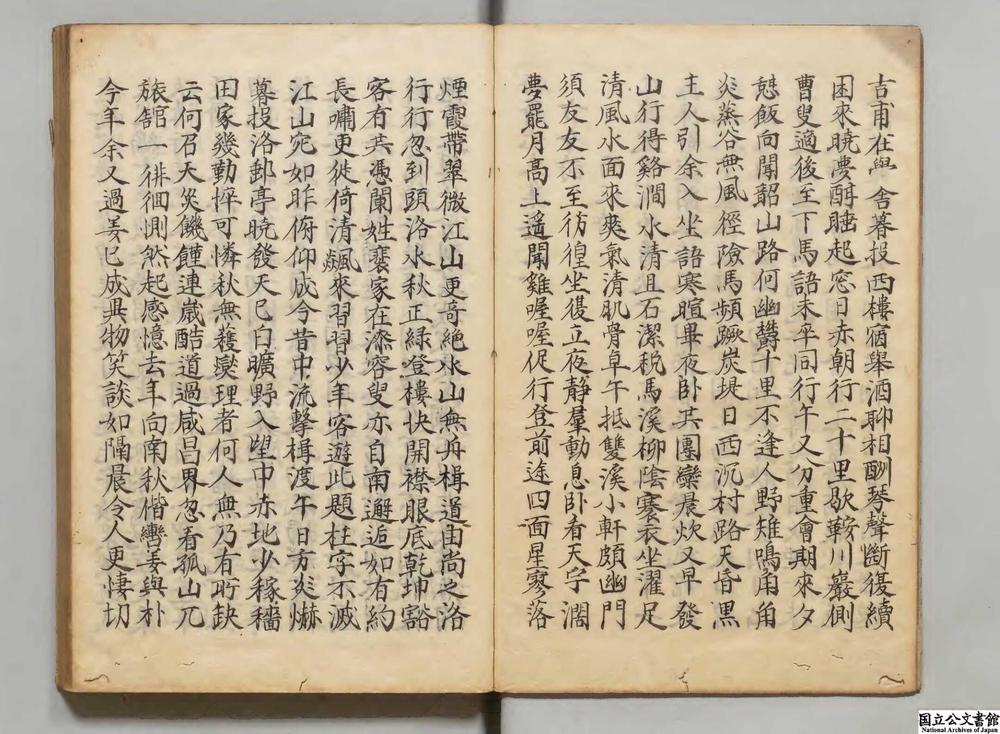 吉甫在學舍暮投西樓宿舉酒聊相酬琴聲斷復續
困來曉夢酣睡起窓日赤朝行二十里歇鞍川巖側
曹叟適後至下馬語未卒同行午又分重會期來夕
憩飯向聞韶山路何幽鬱十里不逢人野雉鳴角角
炎蒸谷無風徑險馬頻蹶炭堤日西沉村路天昏黑
主人引余入坐語寒暄畢夜卧其團欒晨炊又早發
山行得谿澗水清且石潔稅馬溪柳陰褰衣坐濯足
清風水面來爽氣清肌骨卓午抵雙溪小軒頗幽門
須友友不至彷徨坐復立夜静羣動息卧看天宇濶
夢罷月高上遥聞雞喔喔促行登前途四面星寥落
煙霞帶翠微江山更奇絶水山無舟楫道由尚之洛
行行忽到頭洛水秋正緑登樓快開襟眼底乾坤豁
客有共憑闌姓裵家在漆容叟亦自南邂逅如有約
長嘯更徙倚清飇來習習少年客遊此題柱字不滅
江山宛如昨俯仰成今昔中流擊楫渡午日方炎爀
暮投洛郵亭曉發天已白曠野入望中赤地少稼穡
田家幾動悴可憐秋無穫爕理者何人無乃有所缺
云何召天災饑饉連歲酷道過咸昌界忽看孤山兀
旅舘一徘徊惻然起感憶去年向南秋偕轡姜與朴
今年余又過姜已成異物笑談如隔晨令人更悽切
国立公文書館
National Archives of Japan